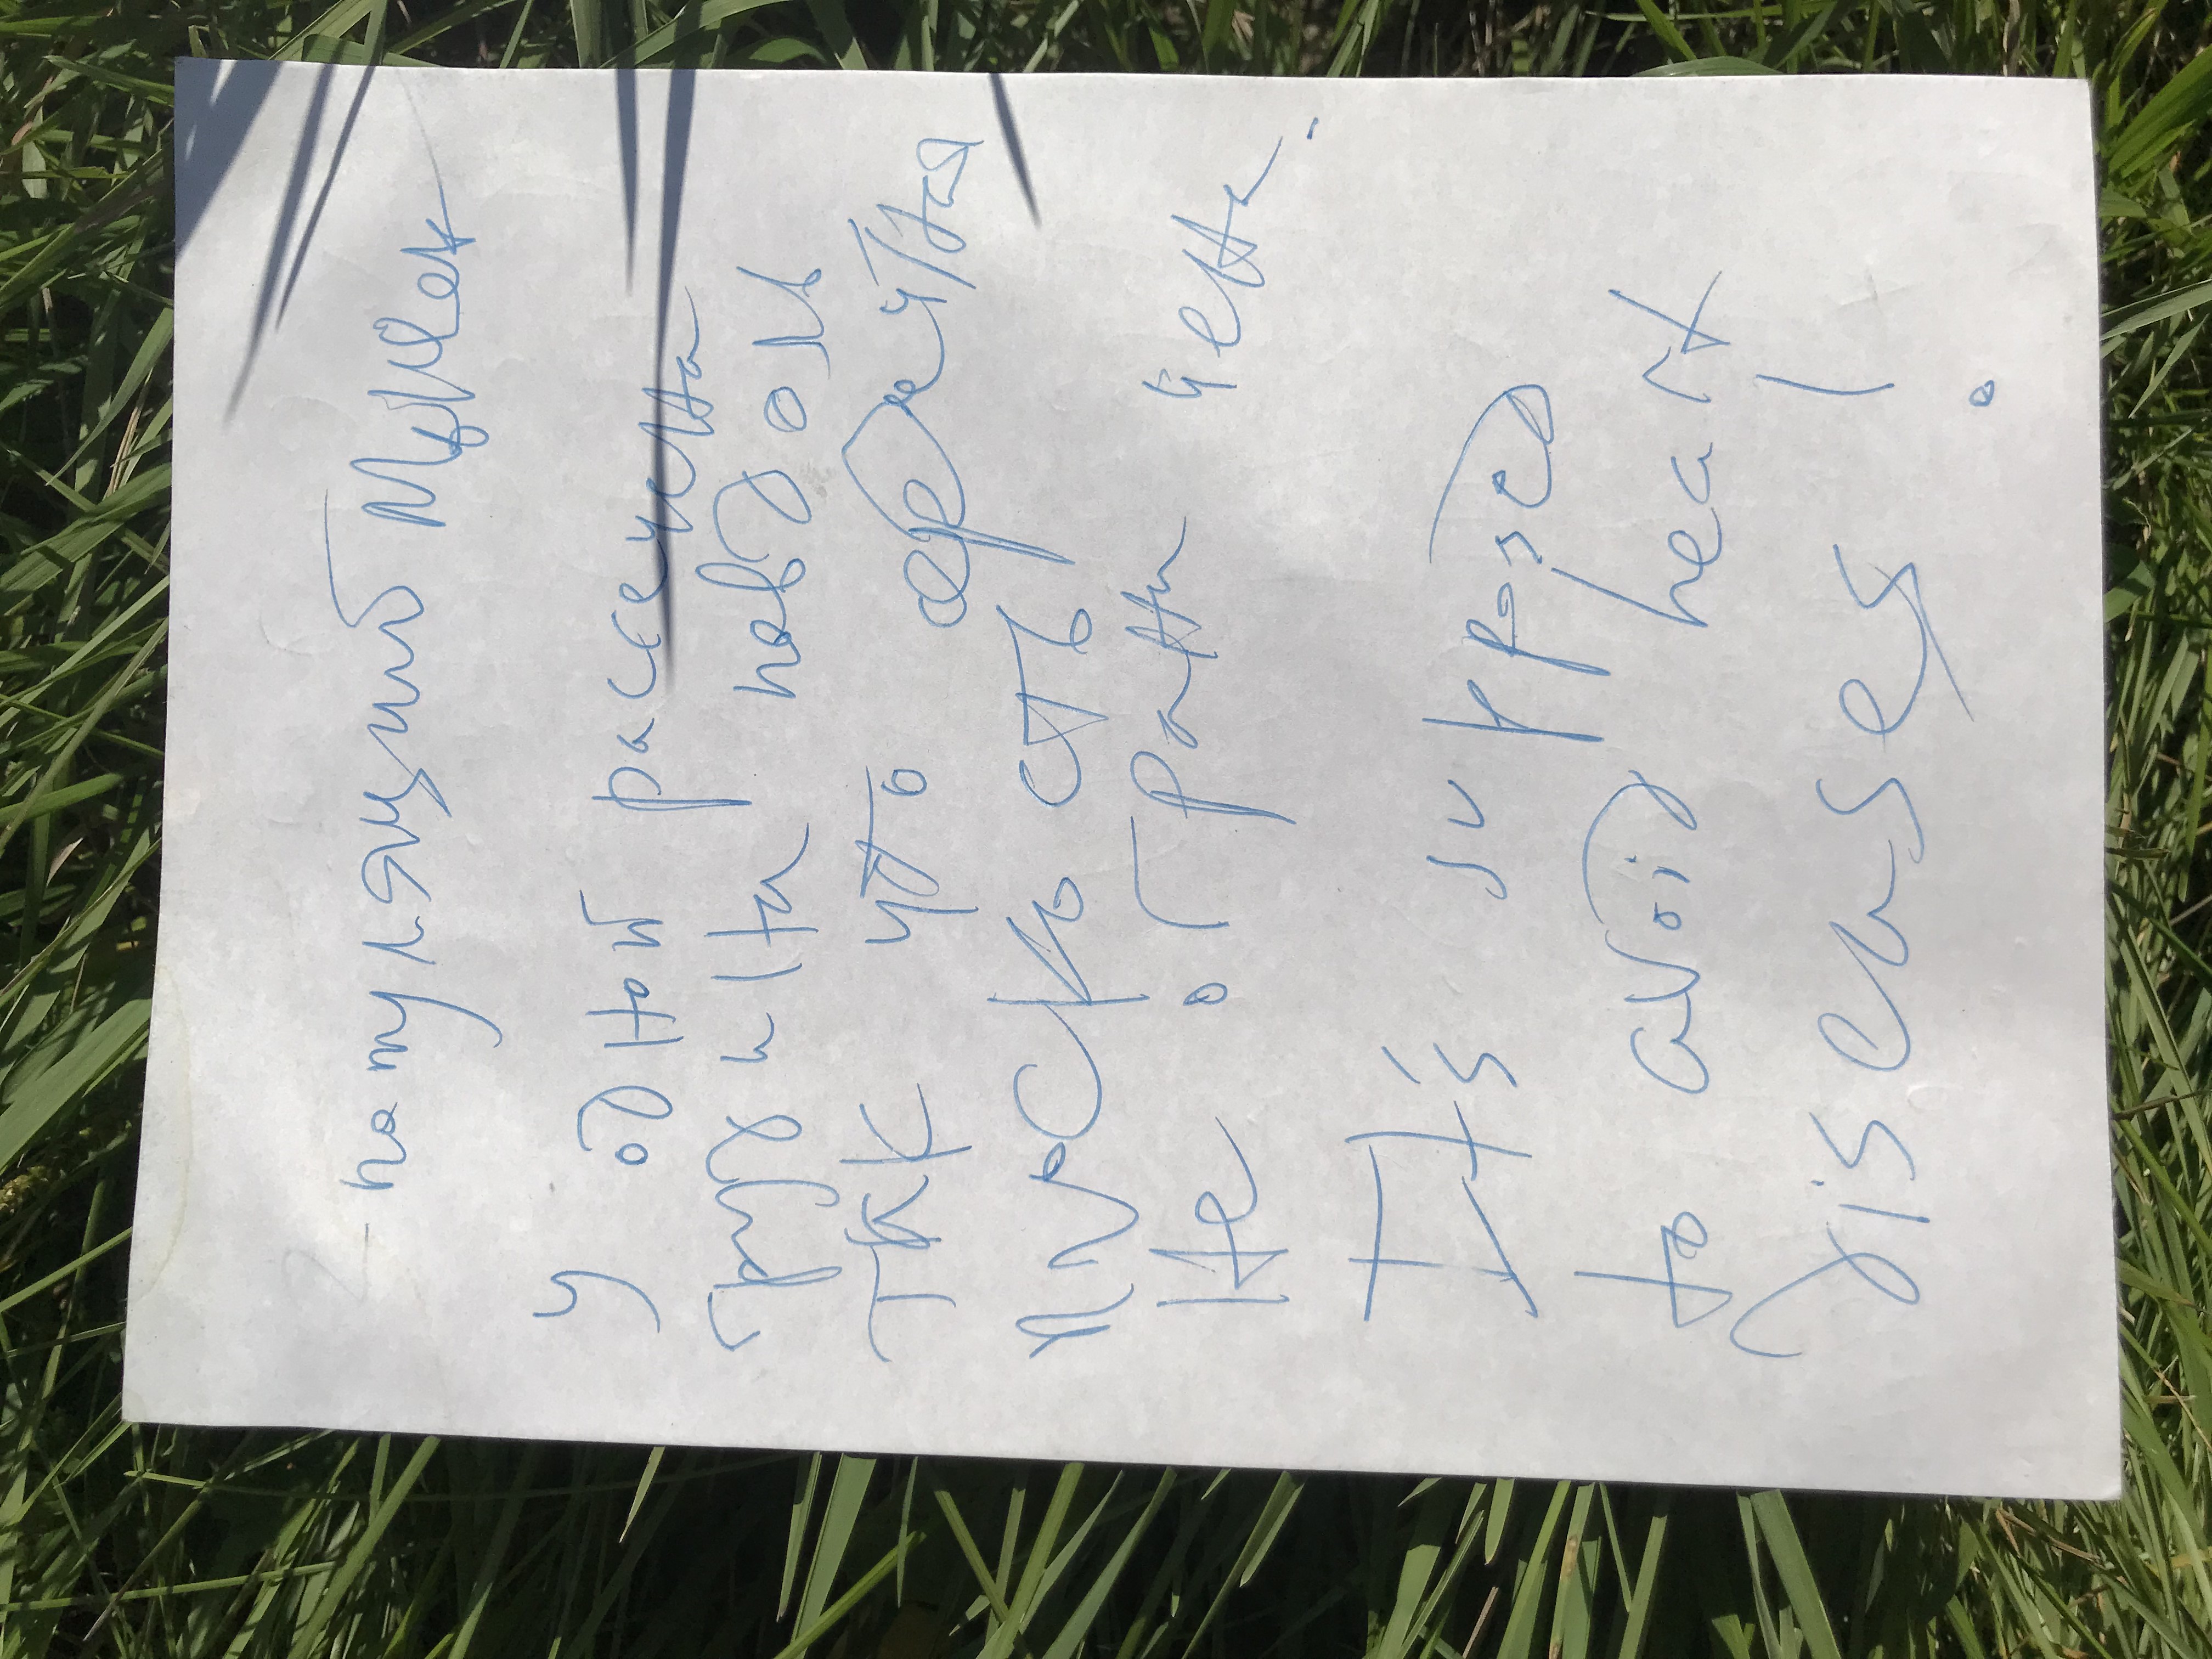 - популяций мышек
У одной рассечена
грудина повдоль
так что
плоскость
не ограничена.
It's supposed
to avoid heart
diseases!